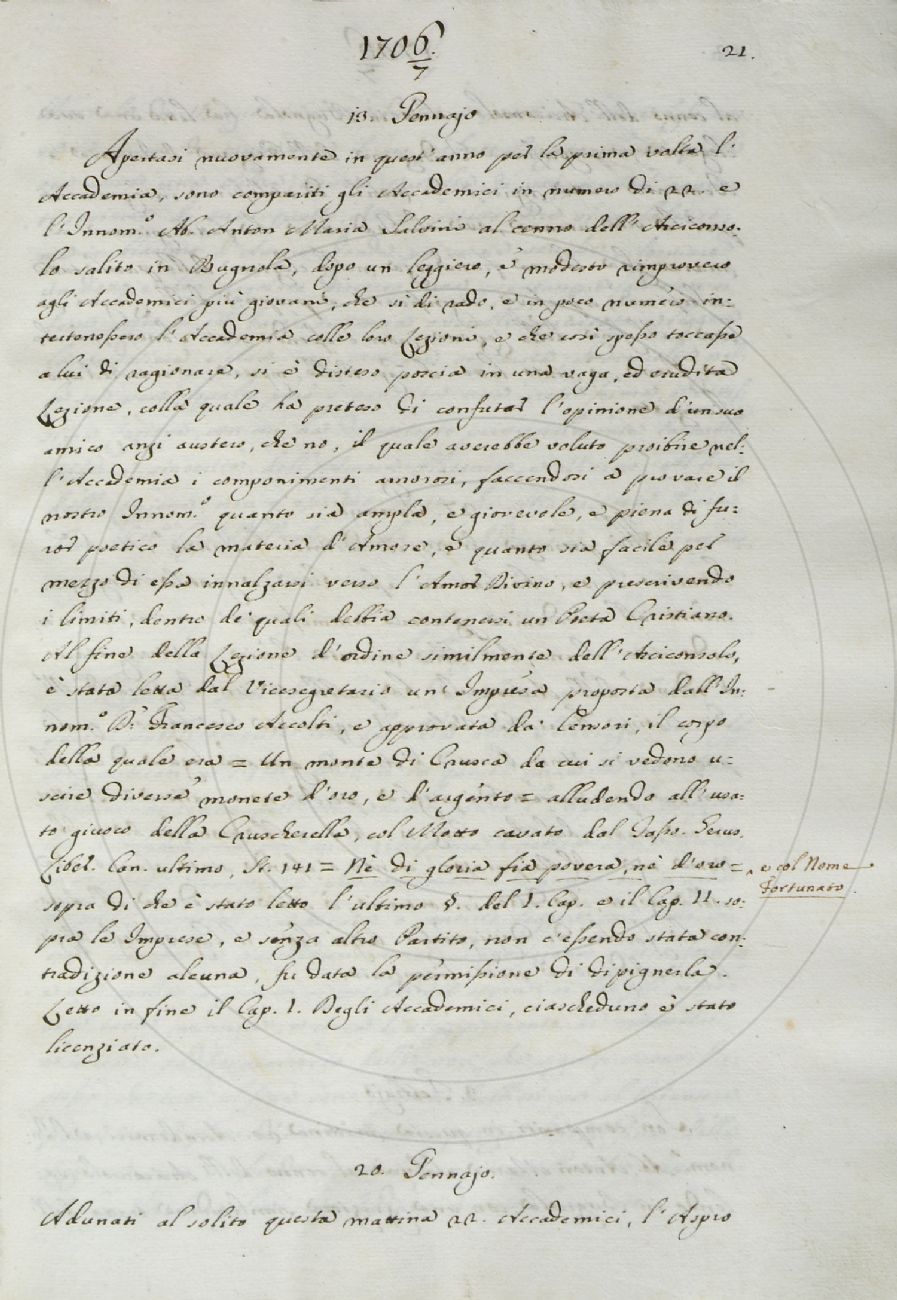 1706/7 21.
13. Gennajo
Apertasi nuovamente in quest'anno per la prima volta l'
Accademia, sono compariti gli Accademici in numero di 22. e
l'Innom.º Ab. Anton Maria Salvini al cenno dell'Arciconso-
lo salito in Bugnola, dopo un leggiero, e modesto rimprovero
agli Accademici più giovani, che sì di rado, e in poco numero in-
tertenessero l'Accademia colle loro Lezioni, e che così spesso toccasse
a lui di ragionare, si è disteso poscia in una vaga, ed erudita
Lezione, colla quale ha preteso di confutar l'opinione d'un suo
amico anzi austero, che no, il quale averebbe voluto proibire nel-
l'Accademia i componimenti amorosi, faccendosi a provare il
nostro Innom.º quanto sia ampla, e giovevole, e piena di fu-
ror poetico la materia d'Amore, e quanto sia facile per
mezzo di essa innalzarsi verso l'Amor Divino, e prescrivendo
i limiti, dentro de' quali debbia contenersi un Poeta Cristiano.
Al fine della Lezione d'ordine similmente dell'Arciconsolo,
è stata letta dal Vicesegretario un'Impresa proposta dall'In-
nom.º D.r Francesco Accolti, e approvata da' Censori, il corpo
della quale era = Un monte di Crusca da cui si vedono u-
scire diverse monete d'oro, e d'argento = alludendo all'usa-
to giuoco della Cruscherella, col Motto cavato dal Tasso. Gerus.
Liber. Can. ultimo, St. 141 = Nè di gloria fia povera, nè d'oro = , e col Nome
Fortunato.
sopra di che è stato letto l'ultimo §. del I. Cap. e il Cap. II. so-
pra le Imprese, e senza altro Partito, non c'essendo stata con-
tradizione alcuna, fu data la permissione di dipignerla.
Letto in fine il Cap. I. Degli Accademici, ciascheduno è stato
licenziato.
20. Gennajo.
Adunati al solito questa mattina 22. Accademici, l'Aspro